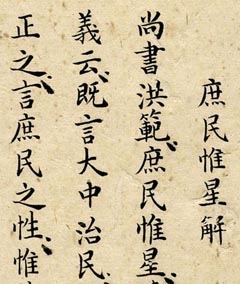 庶民惟星解
尚書洪範庶民惟星
義云既言大中治民
正之言庶民之性惟